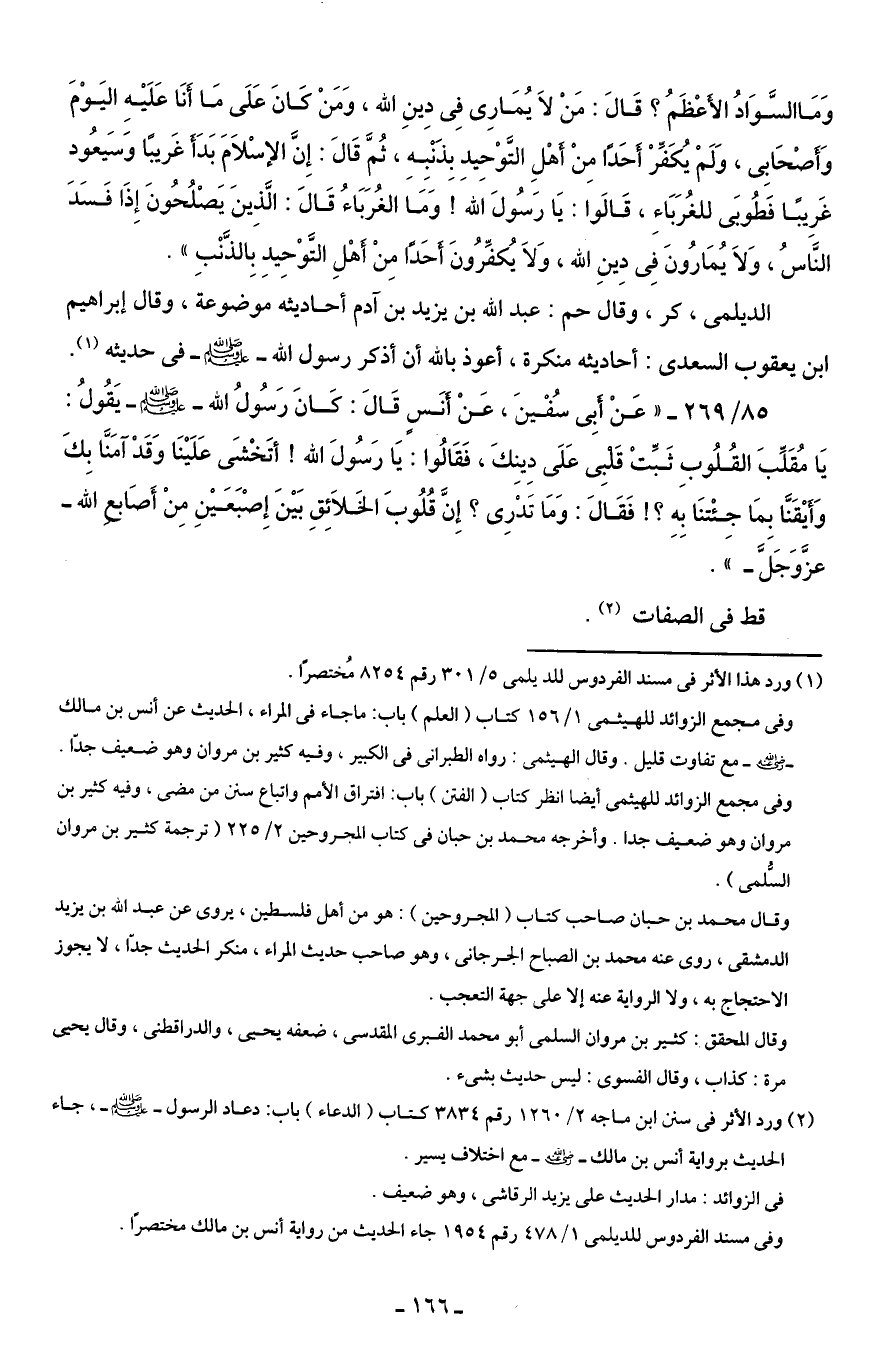 وَمَاالسَّوَادُ الأَعْظَمُ ؟ قَالَ : مَنْ لاَ يُمَارِى فِى دِينِ الله ، وَمَنْ كَانَ عَلَى مَا أَنَا عَلَيْهِ اليَوْمَ
وَأَصْحَابِى ، وَلَمْ يُكَفِّرْ أَحَدًا مِنْ أَهْلِ التَّوْحِيدِ بِذَنْبِهِ ، ثُمَّ قَالَ : إِنَّ الإِسْلاَمَ بَدَأَ غَرِيبًا وَسَيَعُود
غَرِيبًا فَطُوبَى لِلغُرَبَاءِ ، قَالُوا : يَا رَسُولَ الله ! وَمَا الغُرَبَاءُ قَالَ : الَّذِينَ يَصْلُحُونَ إِذَا فَسَدَ
النَّاسُ ، وَلاَ يُمَارُونَ فِى دِينِ الله ، وَلاَ يُكَفِّرُونَ أَحَدًا مِنْ أَهْلِ التَّوْحِيدِ بِالذَّنْبِ » .
الديلمى ، كر ، وقال حم : عبد الله بن يزيد بن آدم أحاديثه موضوعة ، وقال إبراهيم
ابن يعقوب السعدى : أحاديثه منكرة ، أعوذ بالله أن أذكر رسول الله ـ ﷺ ـ فى حديثه (١).
٨٥/ ٢٦٩ ـ « عَنْ أَبِى سُفْيَنَ ، عَنْ أَنَسٍ قَالَ : كَانَ رَسُولُ الله ـ ﷺ ـ يَقُولُ :
يَا مُقَلِّبَ القُلُوبِ ثَبِّتْ قَلْبِى عَلَى دِينِكَ ، فَقَالُوا : يَا رَسُولَ الله ! أَتَخْشَى عَلَيْنَا وَقَدْ آمَنَّا بِكَ
وَأَيْقَنَّا بِمَا جِئْتَنَا بِهِ ؟! فَقَالَ : وَمَا تَدْرِى ؟ إِنَّ قُلُوبَ الخَلاَئِقِ بَيْنَ إِصْبَعَيْنِ مِنْ أَصَابِعِ الله ـ
عزَّوَجَلَّ ـ » .
قط فى الصفات (٢) .
(١) ورد هذا الأثر فى مسند الفردوس للد يلمى ٥/ ٣٠١ رقم ٨٢٥٤ مُختصرًا .
وفى مجمع الزوائد للهيثمى ١/ ١٥٦ كتاب ( العلم ) باب: ماجاء فى المراء ، الحديث عن أنس بن مالك
ـ رضي الله عنه ـ مع تفاوت قليل . وقال الهيثمى : رواه الطبرانى فى الكبير ، وفيه كثير بن مروان وهو ضعيف جدًا .
وفى مجمع الزوائد للهيثمى أيضا انظر كتاب ( الفتن ) باب: افتراق الأمم واتباع سنن من مضى ، وفيه كثير بن
مروان وهو ضعيف جدا . وأخرجه محمد بن حبان فى كتاب المجروحين ٢/ ٢٢٥ ( ترجمة كثير بن مروان
السُّلمى ) .
وقال محمد بن حبان صاحب كتاب ( المجروحين ) : هو من أهل فلسطين ، يروى عن عبد الله بن يزيد
الدمشقى ، روى عنه محمد بن الصباح الجرجانى ، وهو صاحب حديث المراء ، منكر الحديث جدًا ، لا يجوز
الاحتجاج به ، ولا الرواية عنه إلا على جهة التعجب .
وقال المحقق : كثير بن مروان السلمى أبو محمد الفبرى المقدسى ، ضعفه يحيى ، والدراقطنى ، وقال يحيى
مرة : كذاب ، وقال الفسوى : ليس حديث بشىء .
(٢) ورد الأثر فى سنن ابن ماجه ٢/ ١٢٦٠ رقم ٣٨٣٤ كتاب ( الدعاء ) باب: دعاد الرسول ـ ﷺ ـ ، جاء
الحديث برواية أنس بن مالك ـ رضي الله عنه ـ مع اختلاف يسير .
فى الزوائد : مدار الحديث على يزيد الرقاشى ، وهو ضعيف .
وفى مسند الفردوس للديلمى ١/ ٤٧٨ رقم ١٩٥٤ جاء الحديث من رواية أنس بن مالك مختصرًا .
ـ ١٦٦ ـ